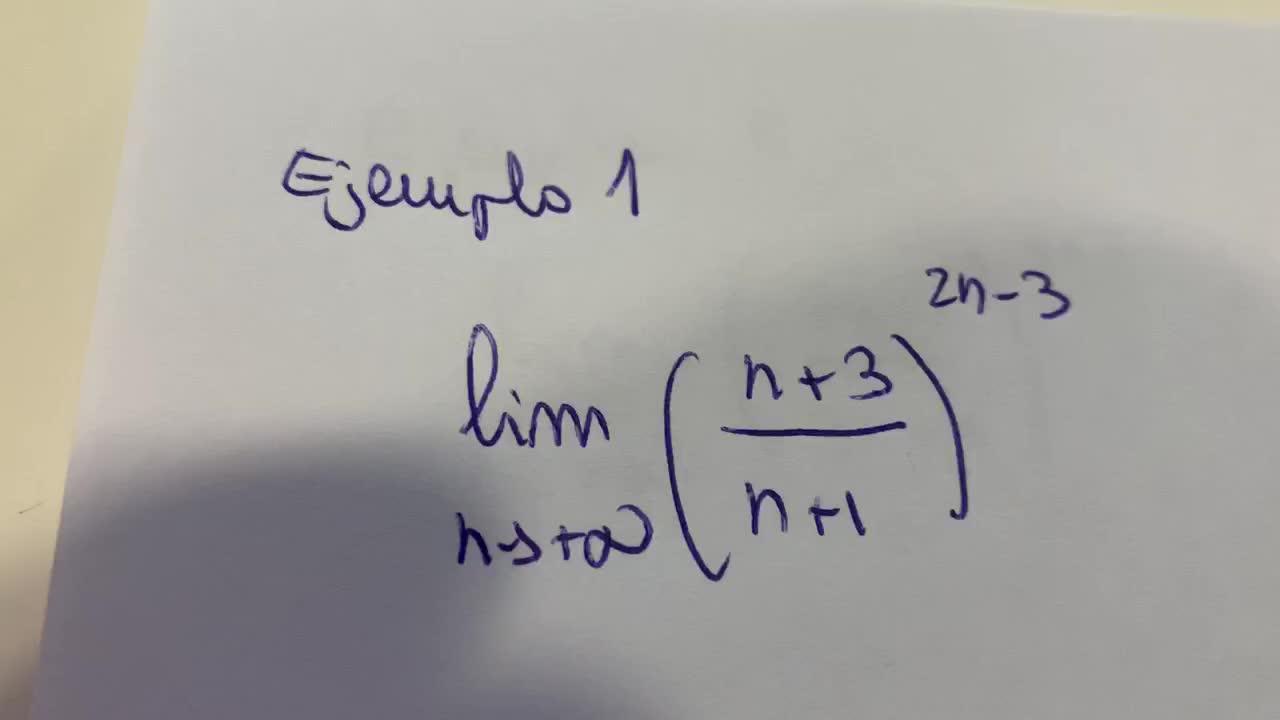 Ejemplo 1
lim n→+∞ ( (n+3)/(n+1) )^(2n-3)